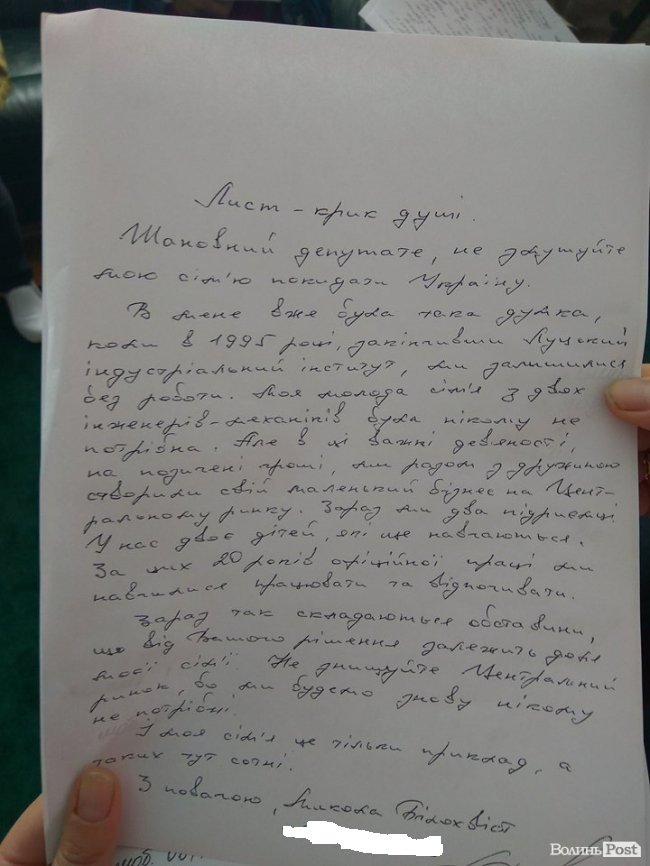 Лист - крик душі.
Шановний депутате, не змушуйте
мою сім'ю покидати Україну.
В мене вже була така думка,
коли в 1995 році, закінчивши Луцький
індустріальний інститут, ми залишились
без роботи. Моя молода сім'я з двох
інженерів-механіків була нікому не
потрібна. Але в ці важкі дев'яності,
на позичені гроші, ми разом з дружиною
створили свій маленький бізнес на Цент-
ральному ринку. Зараз ми два підприємці
У нас двоє дітей, які ще навчаються.
За цих 20 років офіційної праці ми
навчилися працювати та відпочивати.
Зараз так складаються обставини,
що від Вашого рішення залежить доля
моєї сім'ї. Не знищуйте Центральний
ринок, бо ми будемо знову нікому
не потрібні.
І моя сім'я це тільки приклад, а
таких тут сотні.
З повагою, Микола Білохвіст
ВолиньPost